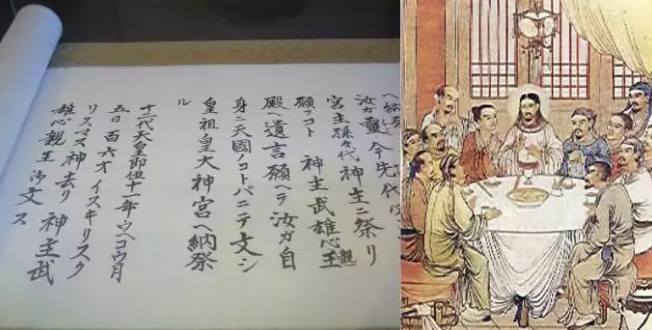 汝ガ靈今先代
宮主孫々代 神主ニ祭リ
願フコト 神主武雄心親王
殿ヘ遺言願ヘラ汝ガ自
身ニ天國ノコトバニテ文シ
皇祖皇大神宮ヘ納祭
ル
十一代天皇即位十一年ウヘコウ月
五日百六オイスキリスク
リスマス神去リ 神主武
雄心親王 文ス